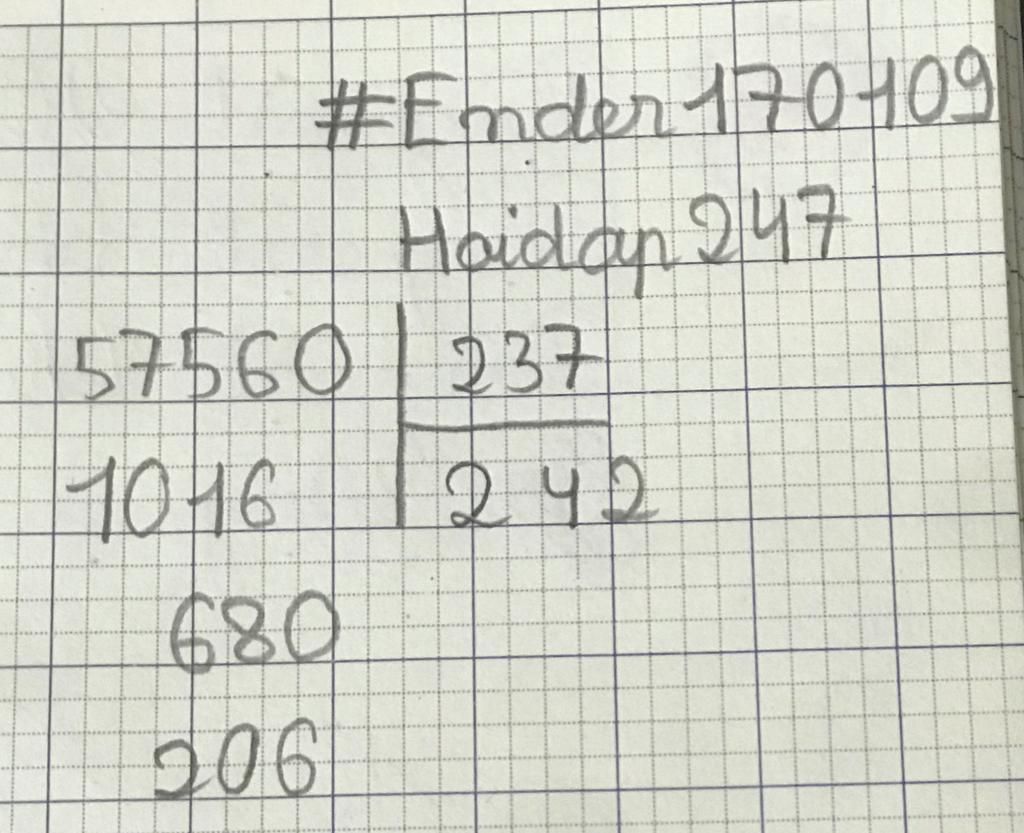 #Ender170109
Hoidap247
57560 237
1016 242
680
206